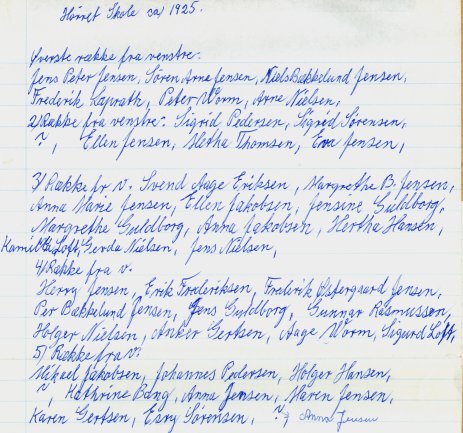 Hørret Skole ca. 1925.
Øverste række fra venstre:
Jens Peter Jensen, Sören Arne Jensen, Niels Bakkelund Jensen,
Frederik Laprath, Peter Worm, Arne Nielsen,
2/Række fra venstre: Sigrid Pedersen, Sigrid Sørensen,
?, Ellen Jensen, Metha Thomsen, Eva Jensen,
3/Række fr v. Svend Aage Eriksen, Margrethe B. Jensen,
Anna Marie Jensen, Ellen Jakobsen, Jensine Guldborg,
Margrethe Guldborg, Anna Jakobsen, Hertha Hansen,
Kamilla Loft, Gerda Nielsen, Jens Nielsen,
4/Række fra v.
Henry Jensen, Erik Frederiksen, Frederik Østergaard Jensen,
Per Bakkelund Jensen, Jens Guldborg, Gunnar Rasmussen,
Holger Nielsen, Anker Gertsen, Aage Worm, Sigurd Loft,
5/Række fra v:
Mikael Jakobsen, Johannes Pedersen, Holger Hansen,
?, Kathrine Bang, Anna Jensen, Maren Jensen,
Karen Gertsen, Esry Sørensen, ? Anna Jensen